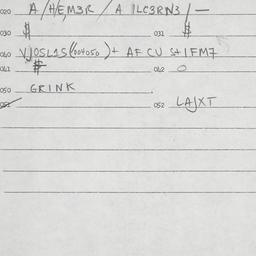 020 A/HEM3R/A ILC3RN3/—
030 $ 031 $
040 VJOSL1S(004050)+ AFCU S+IFM7
041 $ 042 O
050 GRINK
051 052 LAJXT